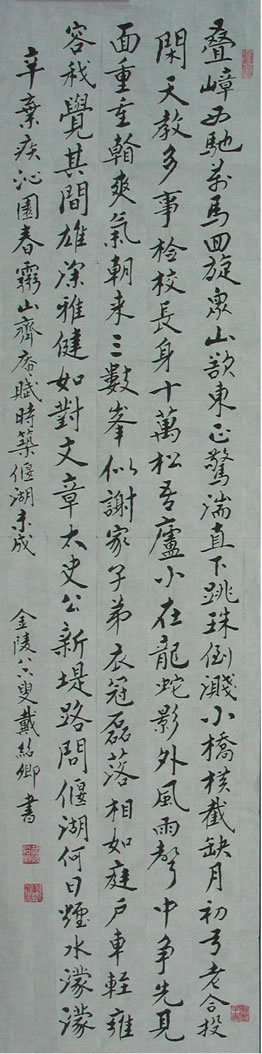 叠嶂西馳萬馬回旋眾山欲東正驚湍直下跳珠倒濺小橋橫截缺月初弓老合投
閑天教多事檢校長身十萬松吾廬小在龍蛇影外風雨聲中爭先見
面重重看爽氣朝來三數峯似謝家子弟衣冠磊落相如庭戶車騎雍
容我覺其間雄深雅健如對文章太史公新堤路問偃湖何日煙水濛濛
辛棄疾沁園春靈山齊庵賦時築偃湖未成
金陵六叟戴紹卿書